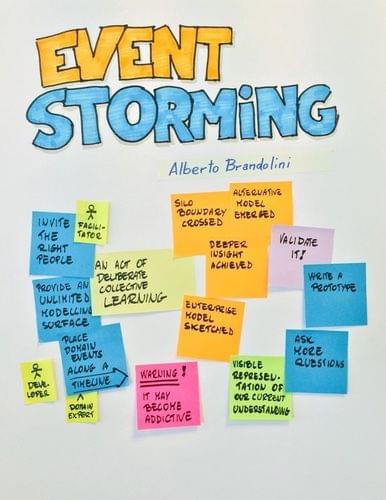 EVENT
STORMiNG
Alberto Brandolini
INVITE
THE
RIGHT
PEOPLE
FACILI-
TATOR
PROVIDE AN
UNLIMITED
MODELLING
SURFACE
PLACE
DOMAIN
EVENTS
ALONG A
TIMELINE
DEVE
LOPER
DOMAIN
EXPERT
AN ACT OF
DELIBERATE
COLLECTIVE
LEARNING
SILO
BOUNDARY
CROSSED
ALTERNATIVE
MODEL
EMERGED
DEEPER
INSIGHT
ACHIEVED
ENTERPRISE
MODEL
SKETCHED
WARNING!
IT MAY
BECOME
ADDICTIVE
VALIDATE
IT!
WRITE A
PROTOTYPE
ASK
MORE
QUESTIONS
VISIBLE
REPRESEN-
TATION OF
OUR CURRENT
UNDERSTANDING